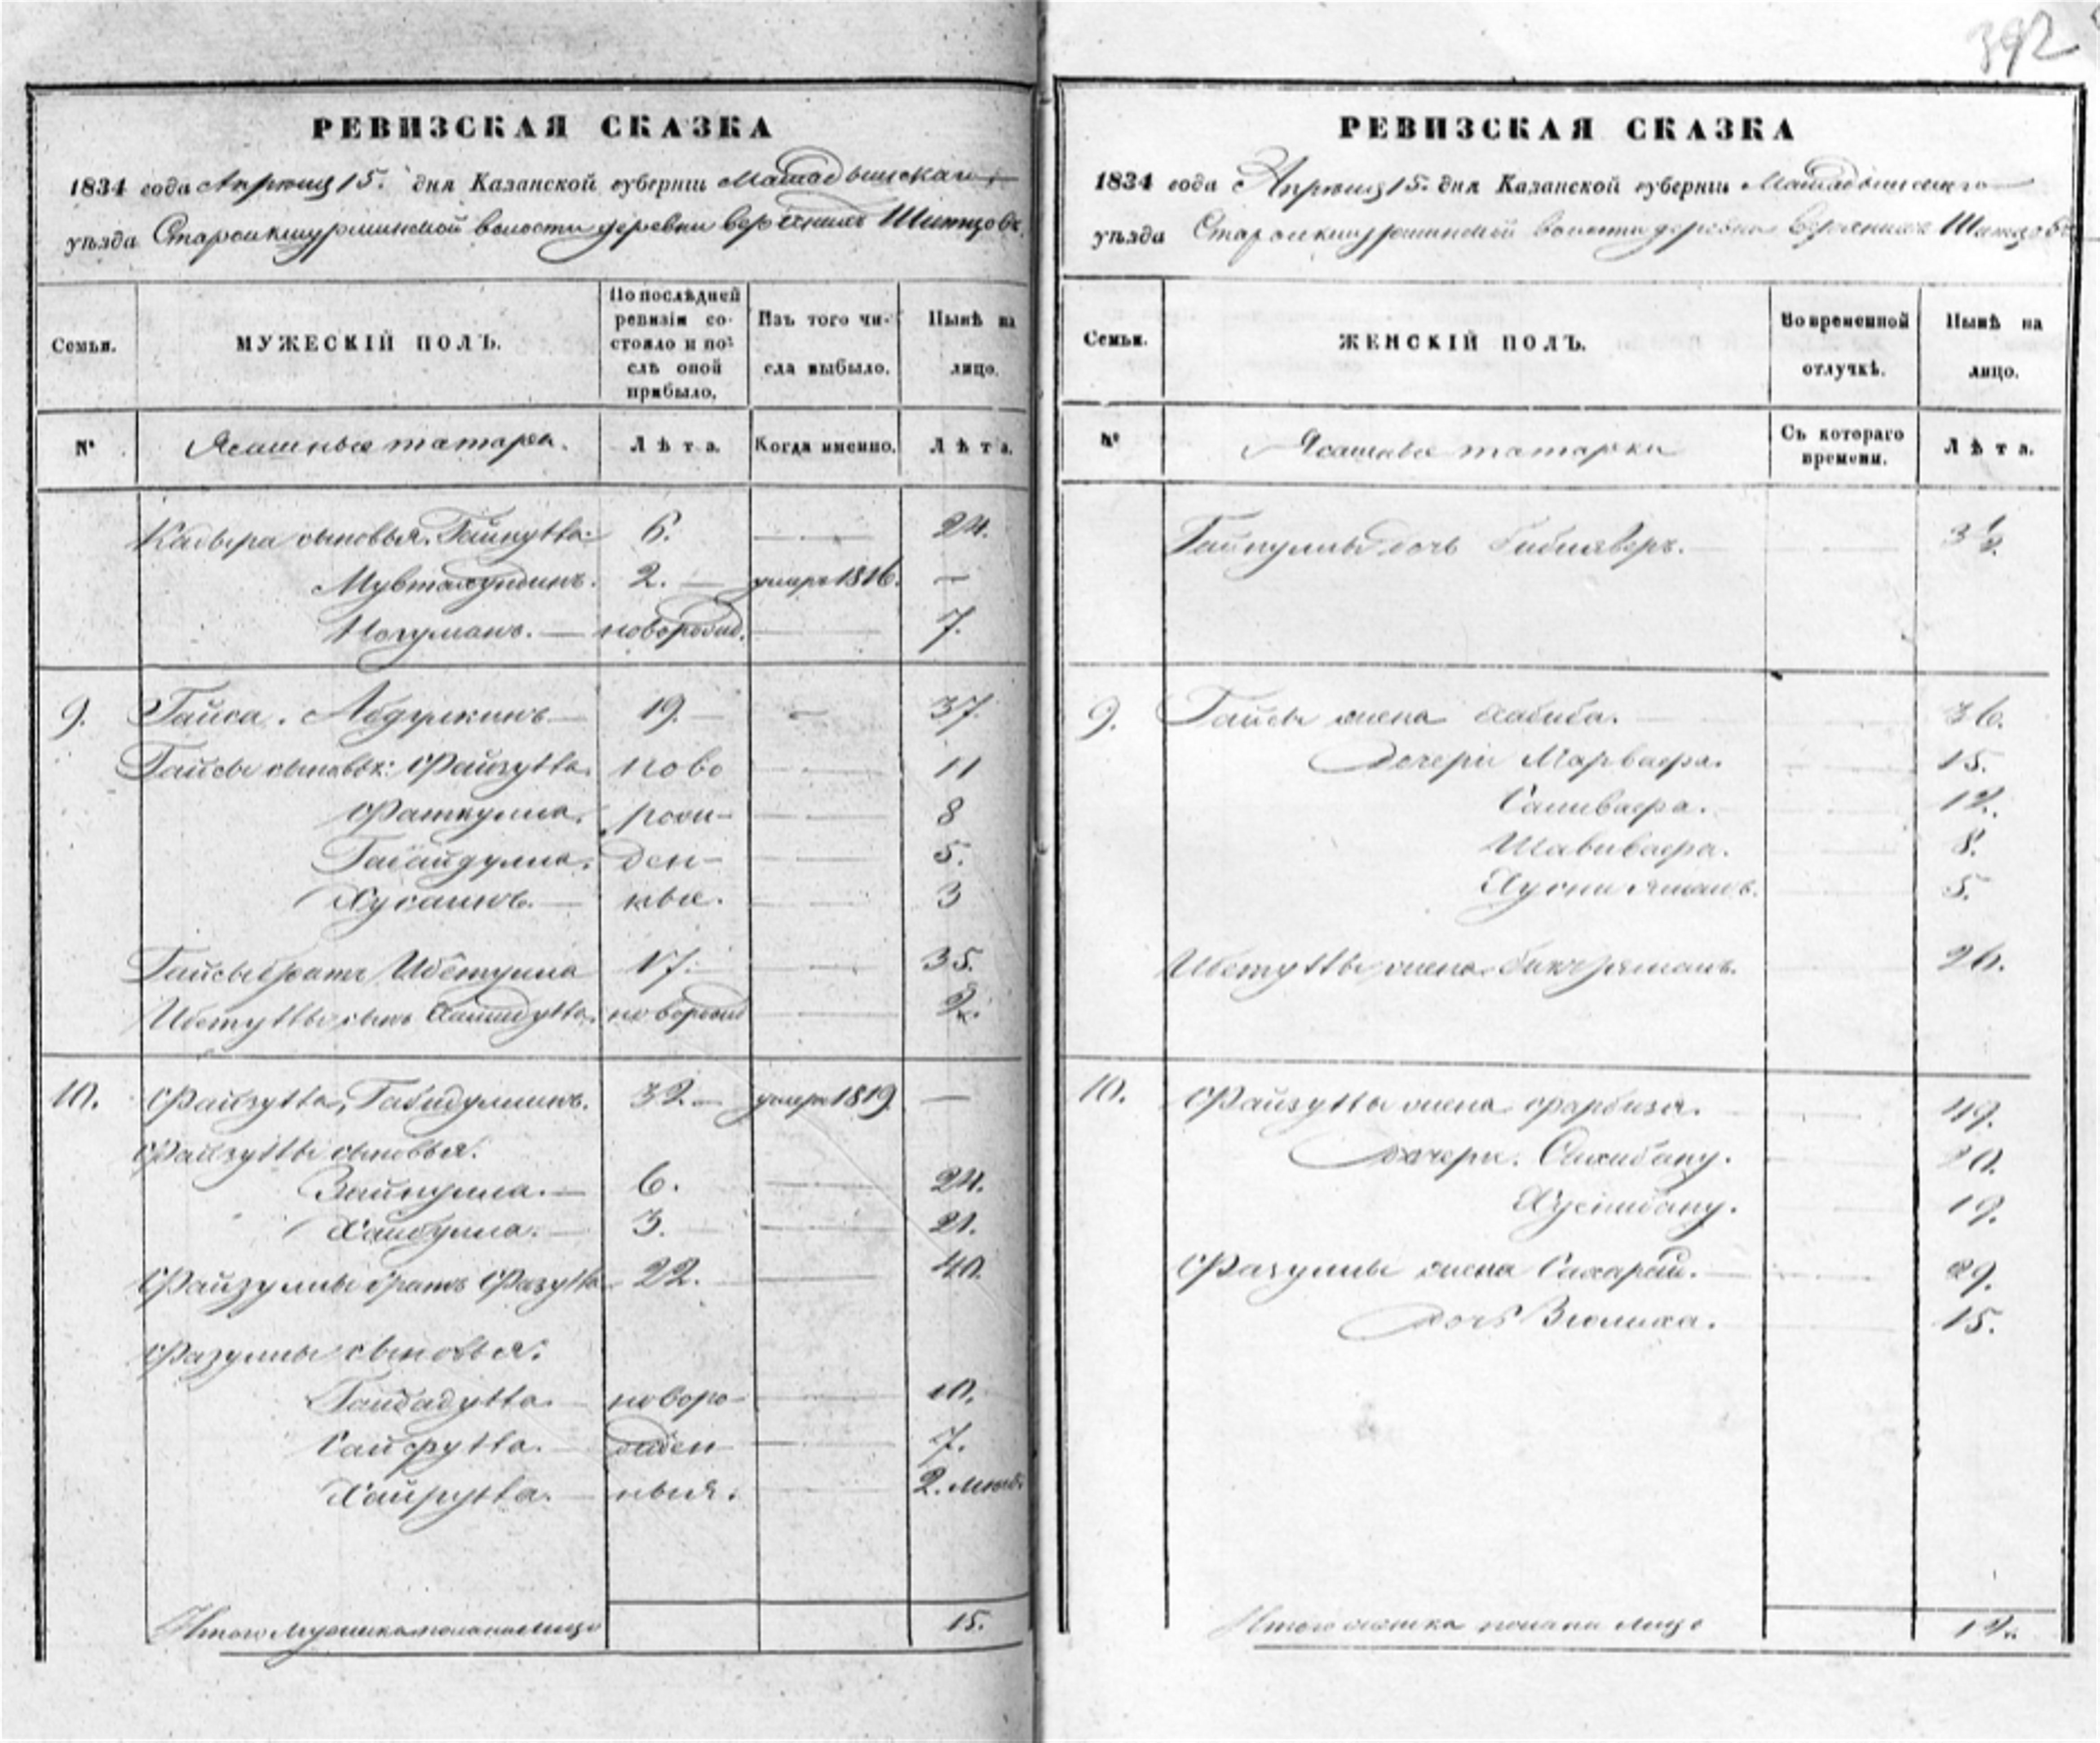 392
РЕВИЗСКАЯ СКАЗКА
1834 года Апреля 15. дня Казанской губерніи Мамадышскаго
уѣзда Староикшурминской волости деревни верхнихъ Шитцовъ.
Семьи.
МУЖЕСКІЙ ПОЛЪ.
По послѣдней ревизіи состояло и послѣ оной прибыло.
Изъ того числа выбыло.
Нынѣ на лицо.
№
Ясашные татара.
Лѣта.
Когда именно.
Лѣта.
Кадыра сыновья. Гайнулла 6. 24.
Мувтахутдинъ. 2. умеръ 1816.
Ногуманъ. новорожд. 7.
9. Гайса. Абдулкинъ 19. 37.
Гайсы сыновья: Файзулла. ново 11
Фаткулла. рож- 8
Габайдулла. ден- 5.
Хусаинъ. ные. 3
Гайсы братъ Ибетулла 17. 35.
Ибетуллы сынъ новорожд
10. Файзулла, Габидуллинъ. 32. умеръ 1819.
Файзуллы сыновья:
Зайнулла. 6. 24.
Хайбулла. 3. 21.
Файзуллы братъ Фазулла 22. 40.
Фазуллы сыновья:
новоро- 10.
Сайфулла. жден 7.
Хайрулла. ныя. 2. мѣсяц.
Итого мужеска пола на лицо 15.
РЕВИЗСКАЯ СКАЗКА
1834 года Апреля 15. дня Казанской губерніи Мамадышскаго
уѣзда Староикшурминской волости деревни Верхнихъ Шитцовъ
Семьи.
ЖЕНСКІЙ ПОЛЪ.
Во временной отлучкѣ.
Нынѣ на лицо.
№
Ясашные татарки
Съ котораго времени.
Лѣта.
Гайнуллы дочь 3½.
9. Гайсы жена Хабиба. 36.
Дочери Марваера. 15.
12.
Шавиваера. 8.
5.
Ибетуллы жена 26.
10. Файзуллы жена Фарбиза. 49.
дочери. Сахибану. 20.
Хуснибану. 19.
Фазуллы жена 29.
дочь Зюлиха. 15.
Итого женска пола на лицо 12.